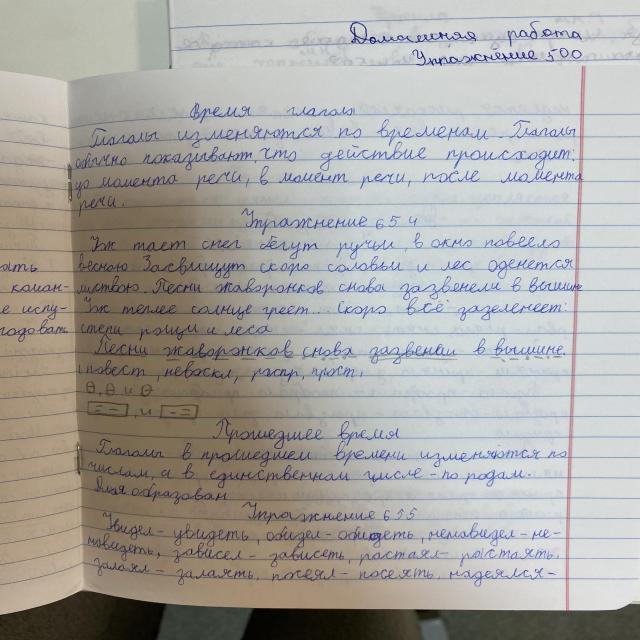 Домашняя работа
Упражнение 500
Время глагола
Глаголы изменяются по временам. Глаголы
обычно показывают, что действие происходит:
до момента речи, в момент речи, после момента
речи.
Упражнение 654
Уж тает снег бегут ручьи, в окно повеело
весною. Засвищут скоро соловьи и лес оденется
листвою. Песни жаворонков снова зазвенели в вышине
Уж теплее солнце греет. Скоро всё зазеленеет:
степи рощи и леса
Песни жаворонков снова зазвенели в вышине.
повест, невоскл, распр, прост,
, и
Прошедшее время
Глаголы в прошедшем времени изменяются по
числам, а в единственном числе - по родам.
Для образован
Упражнение 655
Увидел - увидеть, обидел - обидеть, ненавидел - не-
навидеть, зависел - зависеть, растаял - растаять,
залаял - залаять, посеял - посеять, надеялся -
ать
коман-
е испу-
годоват